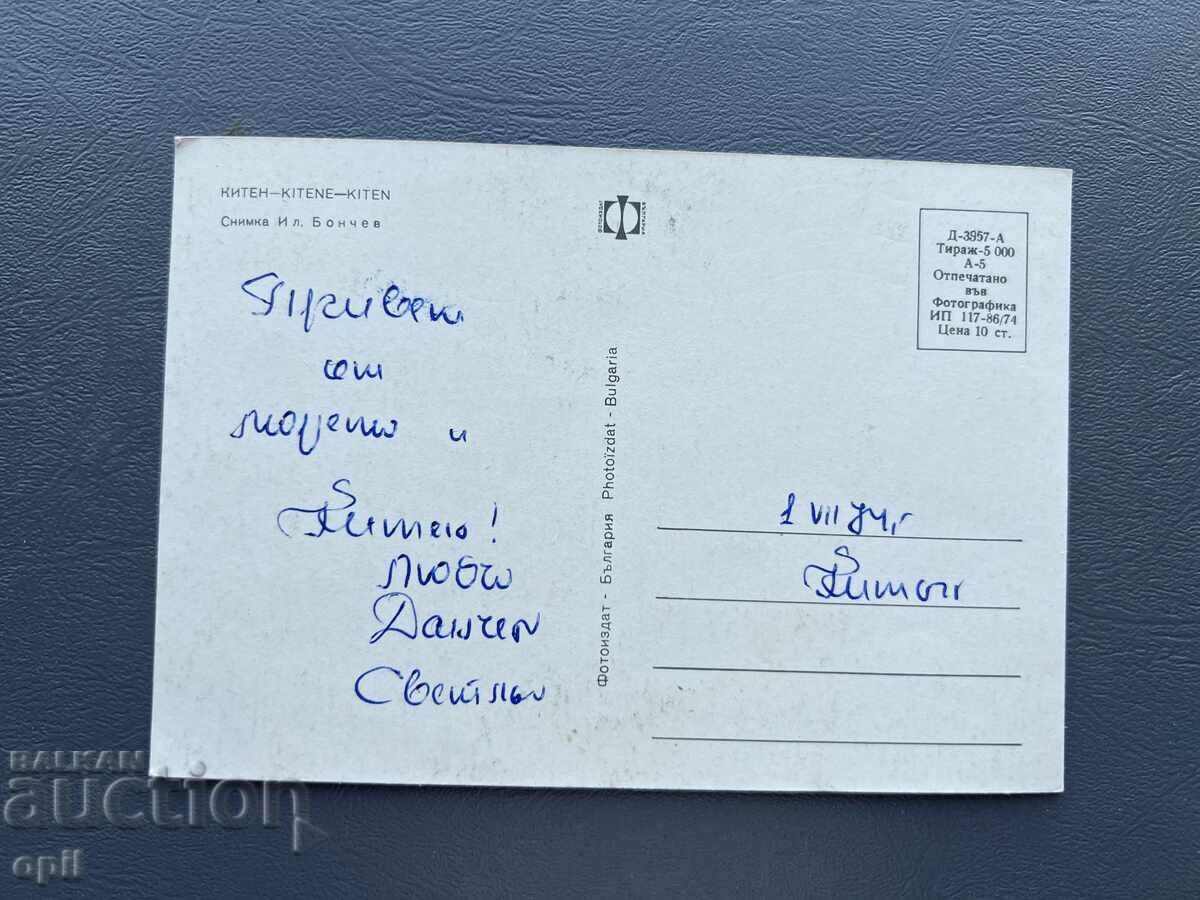 КИТЕН—KITENE—KITEN
Снимка Ил. Бончев
ФОТОИЗДАТ
Д-3957-А
Тираж-5 000
А-5
Отпечатано
във
Фотографика
ИП 117-86/74
Цена 10 ст.
Привет
от
морето и
Китен!
Любчо
Данчев
Фотоиздат - България Photoïzdat - Bulgaria
1 VII 74 г
Китен
BALKAN
auction
opil